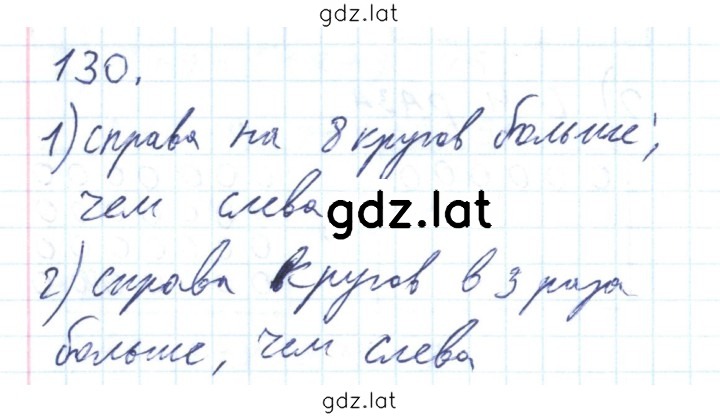 gdz.lat
130.
1) справа на 8 кругов больше,
чем слева
gdz.lat
2) справа кругов в 3 раза
больше, чем слева
gdz.lat